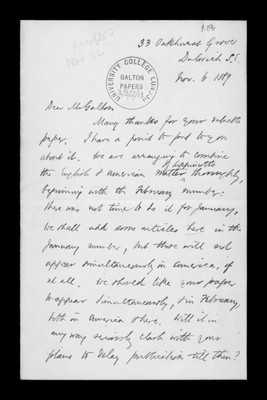 A196
33 Oakhurst Grove
Dulwich S.E.
Nov. 6 1889
UNIVERSITY COLLEGE LONDON
GALTON
PAPERS
Dear Mr Galton
Many thanks for your valuable
paper. I have a point to put to you
about it. We are arranging to combine
of Lippincotts
the English & American matter thoroughly,
beginning with the February number:
there was not time to do it for January.
We shall add some articles here in the
January number, but those will not
appear simultaneously in America, if
at all. We should like your paper
to appear simultaneously, & in February,
both in America & here. Will it in
any way seriously clash with your
plans to delay publication till then?